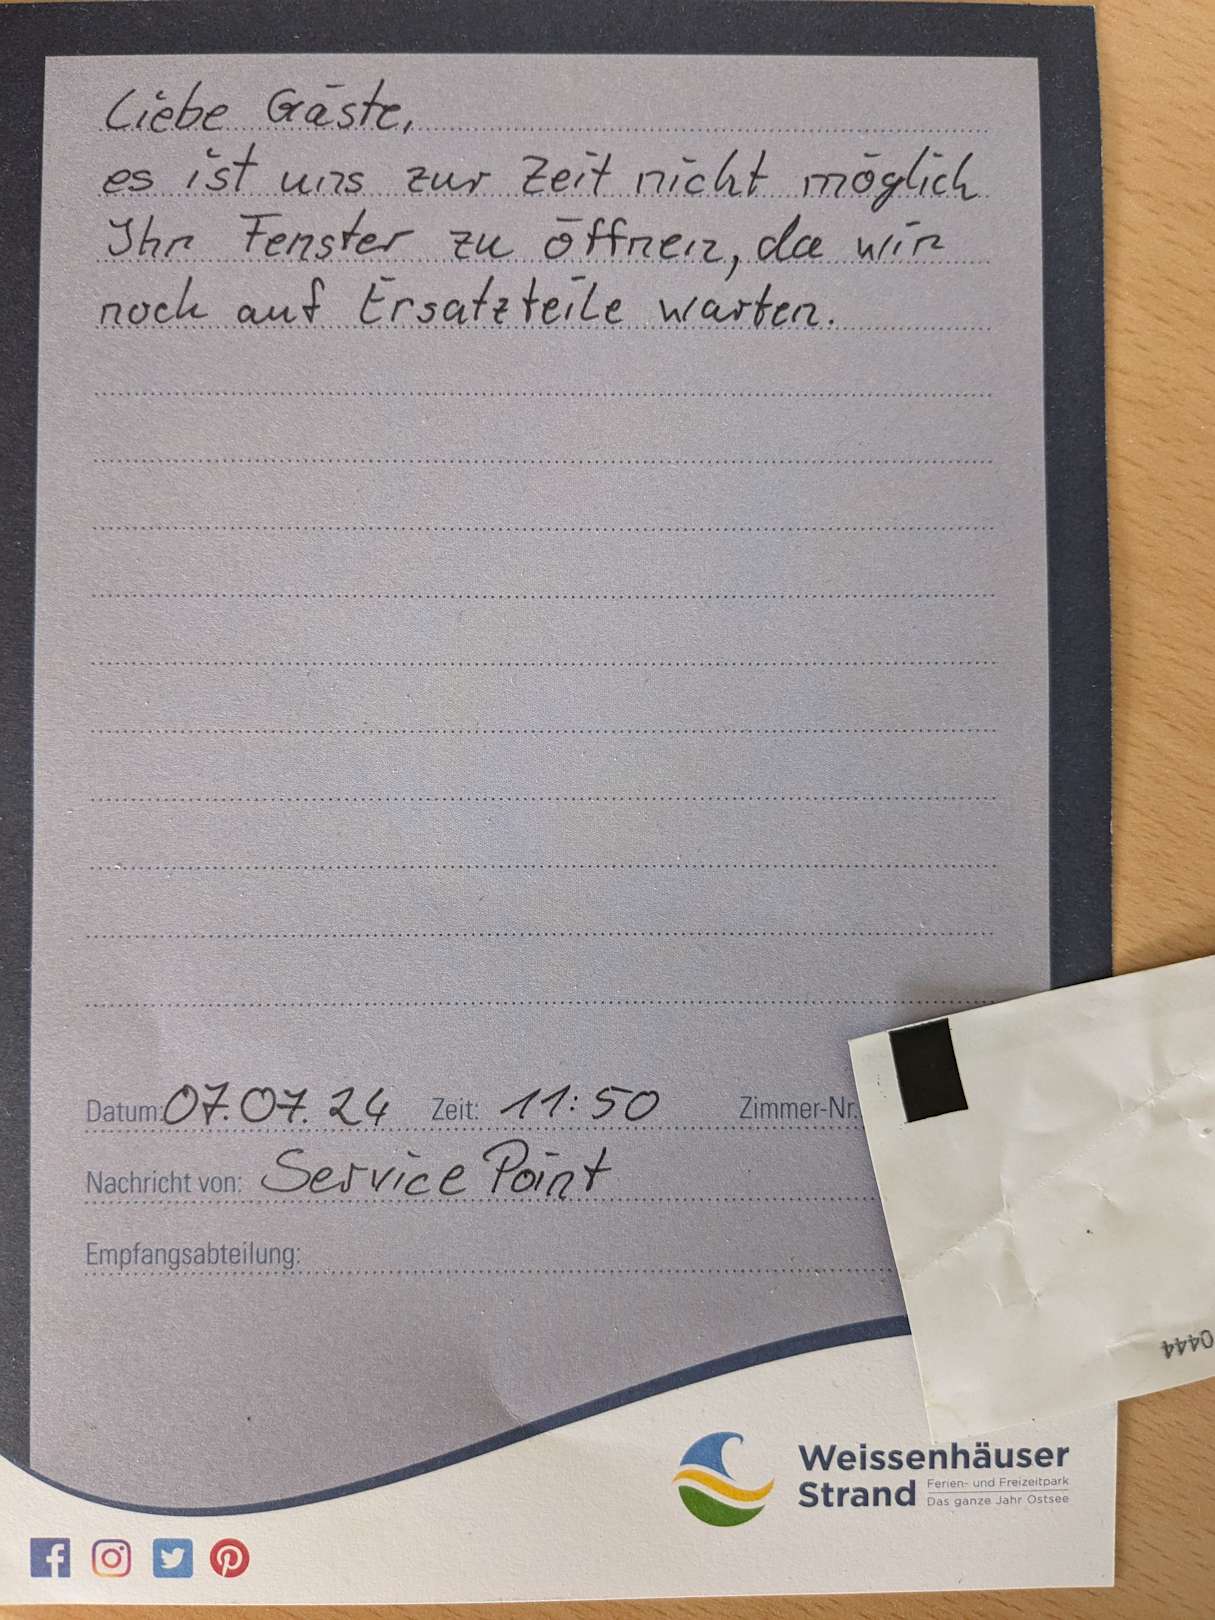 Liebe Gäste,
es ist uns zur Zeit nicht möglich
Ihr Fenster zu öffnen, da wir
noch auf Ersatzteile warten.
Datum: 07.07.24 Zeit: 11:50 Zimmer-Nr.
Nachricht von: Service Point
Empfangsabteilung:
0444
Weissenhäuser
Strand Ferien- und Freizeitpark
Das ganze Jahr Ostsee